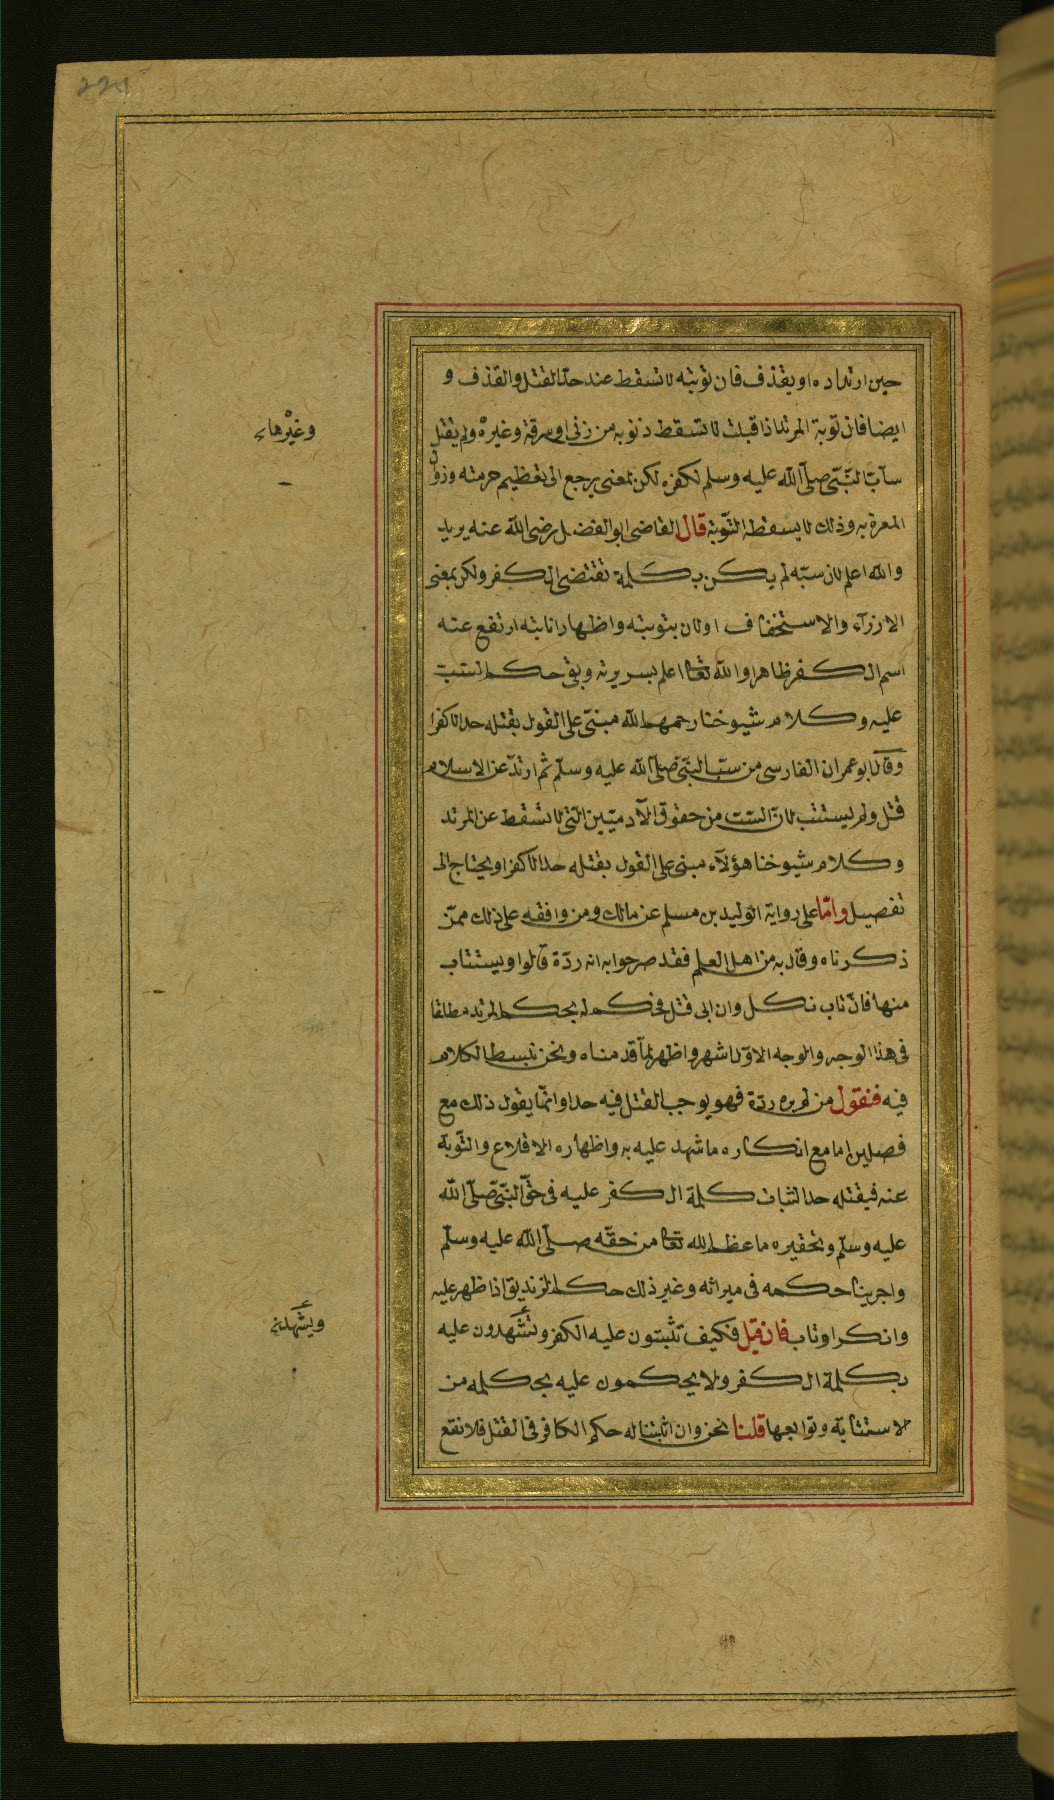 حين ارتداده او يقذف فان توبته لا تسقط عنه حدّ القتل والقذف و
ايضا فان توبة المرتد اذا قبلت لا تسقط ذنوبه من زنى او سرقة وغيره ولم يقتل
وغيْرهاء
سآبّ النّبّى صلّى الله عليه وسلم لكفره لكن لمعنى يرجع الى تعظيم حرمته وزوال
المعرة به وذلك لا يسقطه التّوبة قال القاضى ابو الفضل رضى الله عنه يريد
والله اعلم لان سبّه لم يكن بكلمة تقتضى الكفر ولكن بمعنى
الازرآء والاستخفاف او لان بتوبته واظهار انابته ارتفع عنه
اسم الكفر ظاهرا والله تعا اعلم بسريرته وبقى حكم السّب
عليه وكلام شيوخنا رحمهم الله مبنىّ على القول بقتله حدا لا كفرا
وقال ابو عمران الفارسى من سبّ النبّى صلّى الله عليه وسلّم ثم ارتدّ عن الاسلام
قتل ولم يستتب لانّ السّب من حقوق الآدميّين الّتى لا تسقط عن المرتد
وكلام شيوخنا هؤلآء مبنى على القول بقتله حدا لا كفرا ويحتاج الى
تفصيل وامّا على رواية الوليد بن مسلم عن مالك ومن وافقه على ذلك ممّن
ذكرناه وقال به من اهل العلم فقد صرحوا به انه ردّة قالوا ويستتاب
منها فانّ تاب نكل وان ابى قتل فحكم له بحكم المرتد مطلقا
فى هذا الوجه والوجه الاوّل اشهر واظهر لما قدمناه ونحن نبسط الكلام
فيه فنقول من لم يره ردّة فهو يوجب القتل فيه حدا وانّما يقول ذلك مع
فصلين اما مع انكاره ما شهد عليه به واظهاره الاقلاع والتّوبة
عنه فيقتله حدا لثبات كلمة الكفر عليه فى حقّ النبّى صّلى الله
عليه وسلّم وتحقيره ما عظم الله تعا من حقّه صلّى الله عليه وسلّم
واجرينا حكمه فى ميراثه وغير ذلك حكم الزنديق اذا ظهر عليه
وانكر او تاب فان قيل فكيف تثبتون عليه الكفر وتشهدون عليه
بكلمة الكفر ولا يحكمون عليه بحكمه من
الاستتابة وتوابعها قلنا نحن وان اثبتنا له حكم الكافر فى القتل فلا نقع